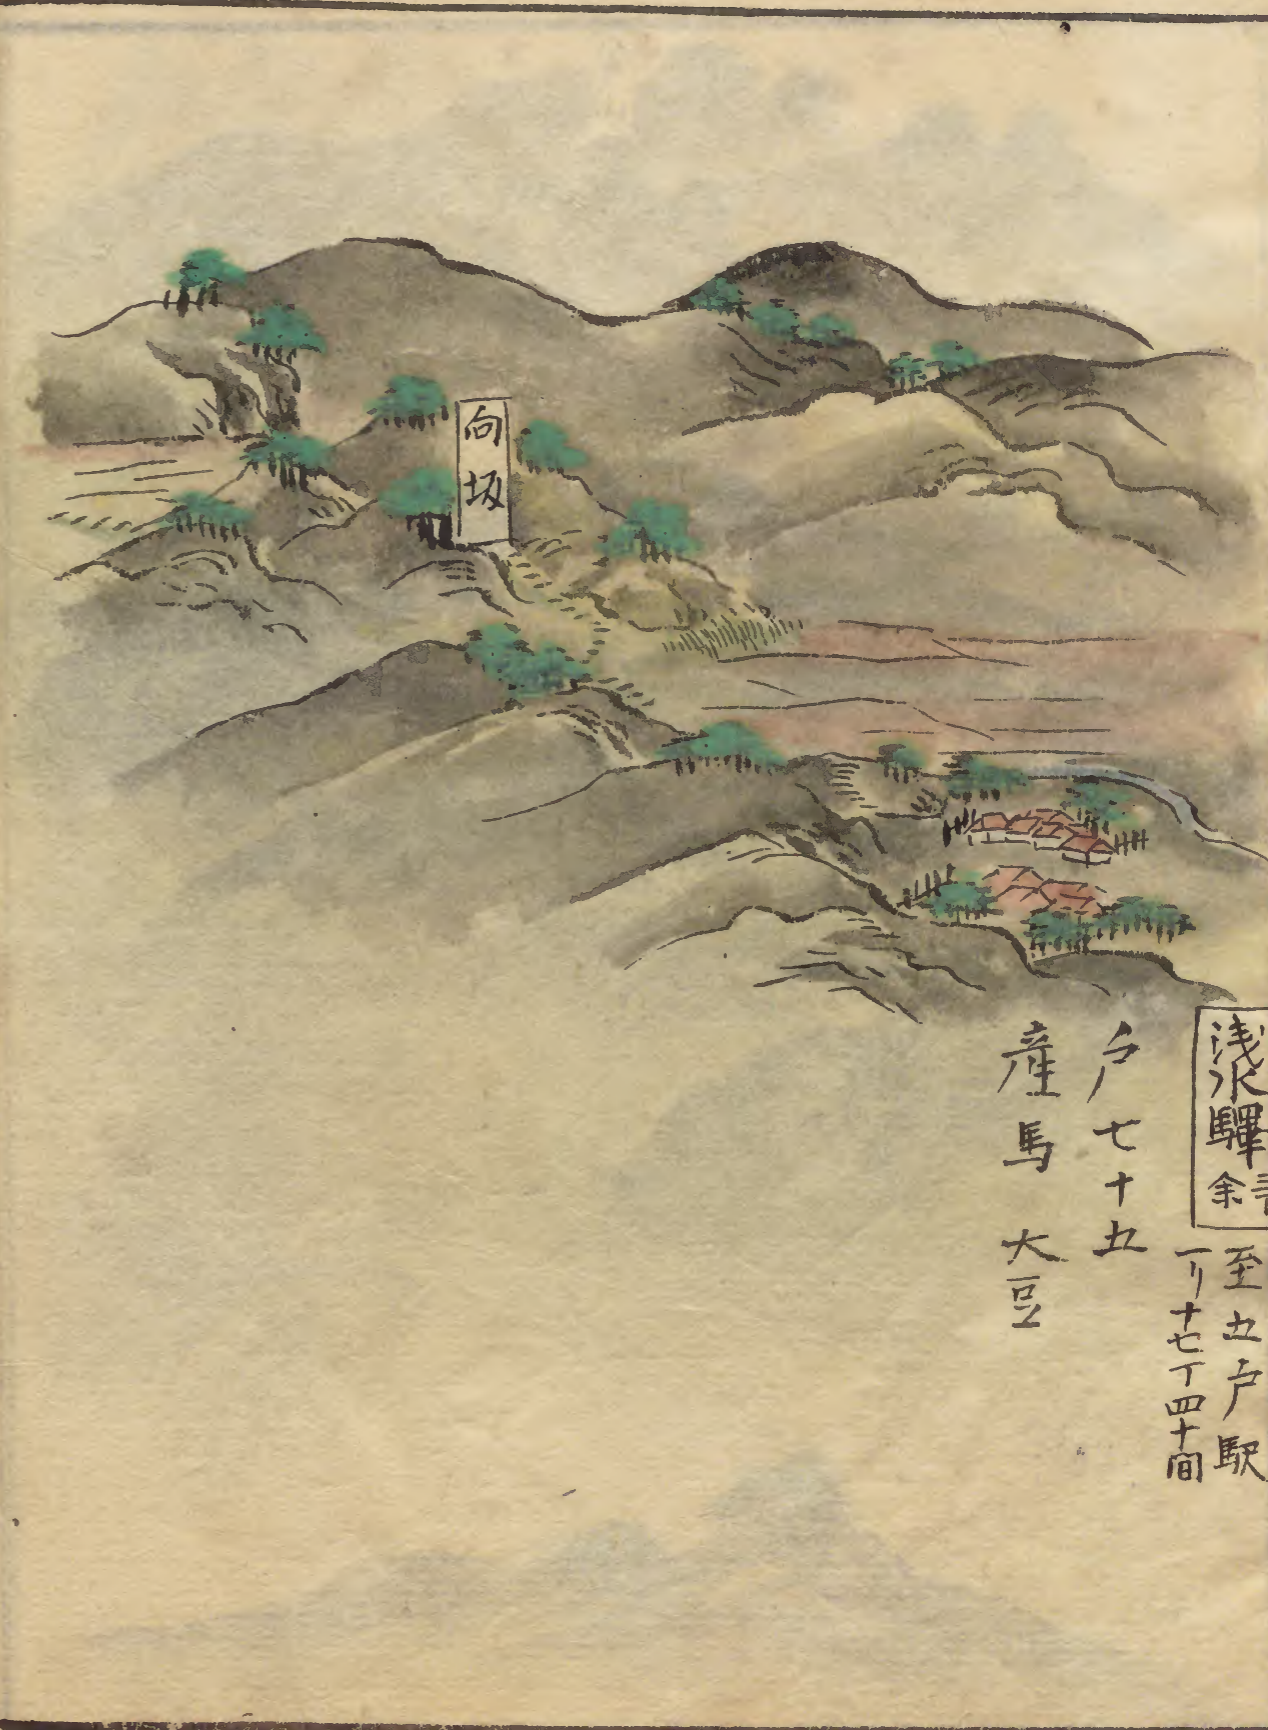 向坂
浅水驛
余
至五戸駅
一リ十七丁四十間
戸七十五
産馬 大豆